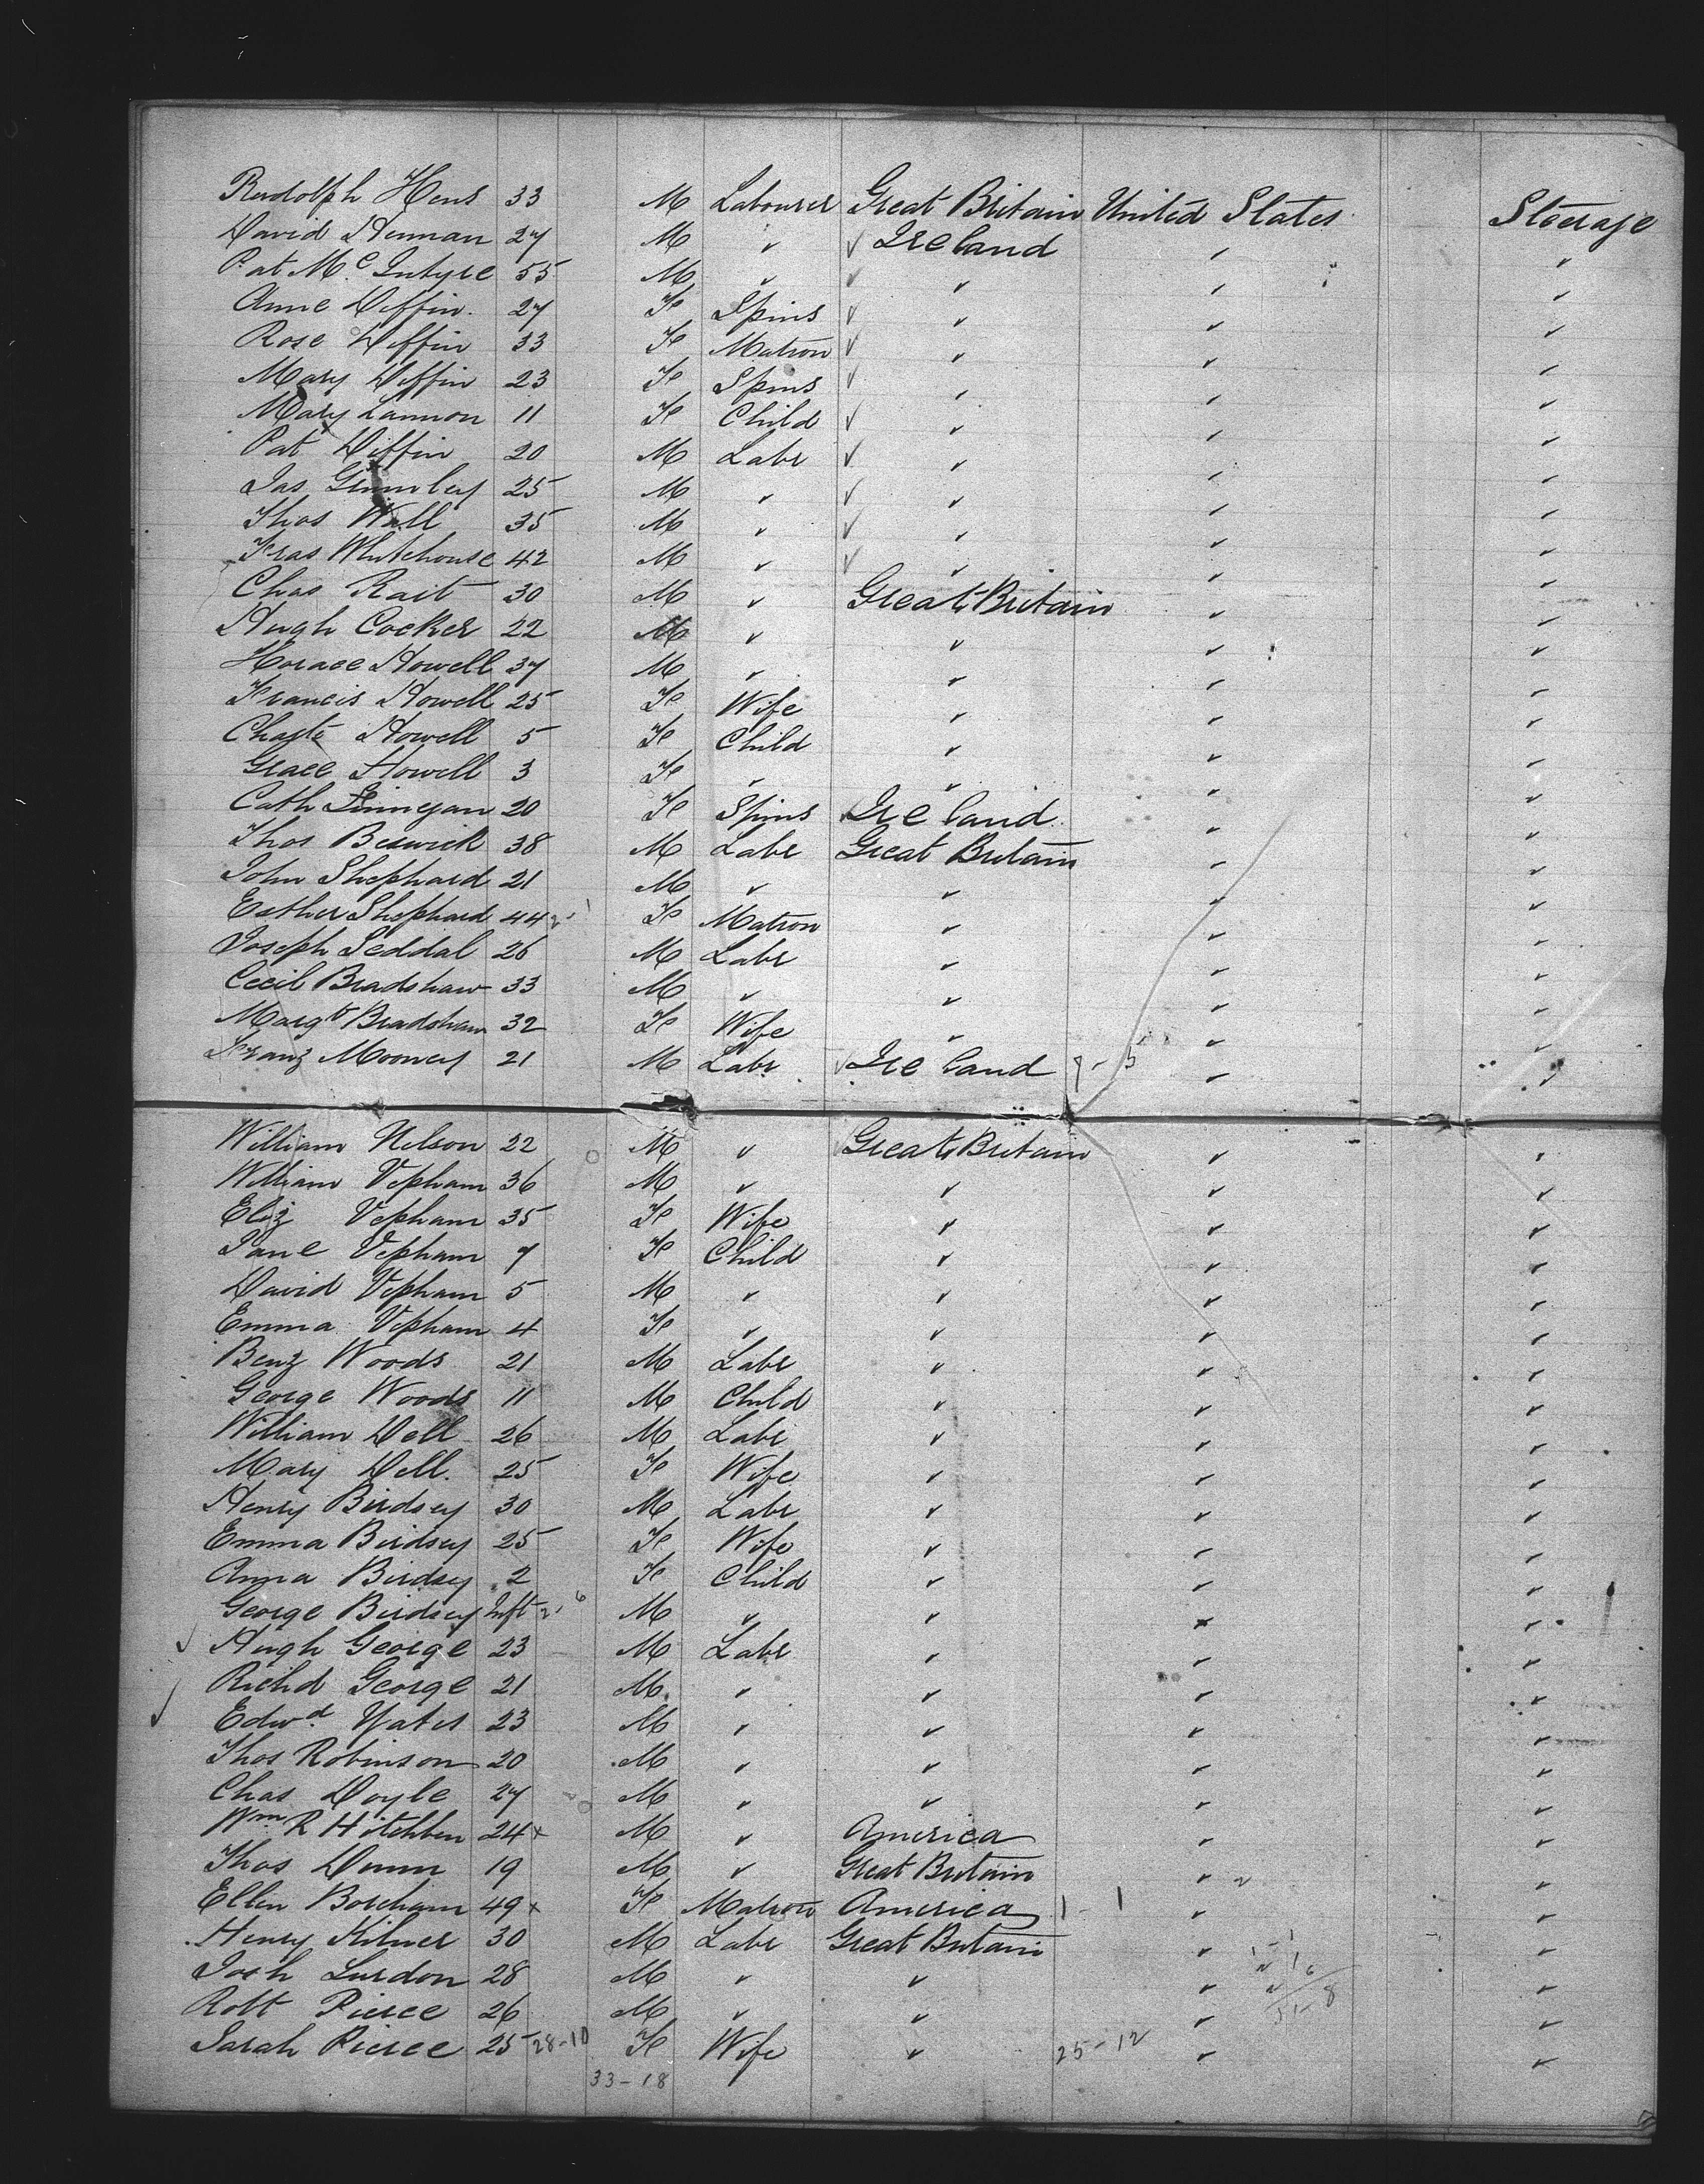 Rudolph Hens 33 M Labourer Great Britain United States Steerage
David Henman 27 M ✓ ✓ Ireland ✓ ✓
Pat McIntyre 55 M ✓ ✓ ✓ ✓ ✓
Anne Diffin 27 F Spins ✓ ✓ ✓ ✓
Rose Diffin 33 F Matron ✓ ✓ ✓ ✓
Mary Diffin 23 F Spins ✓ ✓ ✓ ✓
Mary Lannon 11 F Child ✓ ✓ ✓ ✓
Pat Diffin 20 M Labr ✓ ✓ ✓ ✓
Jas Gumley 25 M ✓ ✓ ✓ ✓ ✓
Thos Wall 35 M ✓ ✓ ✓ ✓ ✓
Fras Whitehouse 42 M ✓ ✓ ✓ ✓ ✓
Chas Rait 30 M ✓ Great Britain ✓ ✓
Hugh Cocker 22 M ✓ ✓ ✓ ✓
Horace Howell 37 M ✓ ✓ ✓ ✓
Francis Howell 25 F Wife ✓ ✓ ✓
Chafte Howell 5 F Child ✓ ✓ ✓
Grace Howell 3 F ✓ ✓ ✓ ✓
Cath Finnegan 20 F Spins ✓ Ireland ✓ ✓
Thos Beswick 38 M Labr Great Britain ✓ ✓
John Shephard 21 M ✓ ✓ ✓ ✓
Esther Shephard 44 2-1 F Matron ✓ ✓ ✓
Joseph Seddal 26 M Labr ✓ ✓ ✓
Cecil Bradshaw 33 M ✓ ✓ ✓ ✓
Margt Bradshaw 32 F Wife ✓ ✓ ✓
Franz Mooney 21 M Labr ✓ Ireland 9-5 ✓ ✓
William Nelson 22 M ✓ Great Britain ✓ ✓
William Vepham 36 M ✓ ✓ ✓ ✓
Eliz Vepham 35 F Wife ✓ ✓ ✓
Jane Vepham 7 F Child ✓ ✓ ✓
David Vepham 5 M ✓ ✓ ✓ ✓
Emma Vepham 4 F ✓ ✓ ✓ ✓
Benj Woods 21 M Labr ✓ ✓ ✓
George Woods 11 M Child ✓ ✓ ✓
William Dell 26 M Labr ✓ ✓ ✓
Mary Dell 25 F Wife ✓ ✓ ✓
Henry Birdsey 30 M Labr ✓ ✓ ✓
Emma Birdsey 25 F Wife ✓ ✓ ✓
Anna Birdsey 2 F Child ✓ ✓ ✓
George Birdsey Inft 2-6 M ✓ ✓ ✓ ✓
✓ Hugh George 23 M Labr ✓ ✓ ✓
✓ Richd George 21 M ✓ ✓ ✓ ✓
Edwd Yates 23 M ✓ ✓ ✓ ✓
Thos Robinson 20 M ✓ ✓ ✓ ✓
Chas Doyle 27 M ✓ ✓ ✓ ✓
Wm R Hitchben 24 x M ✓ America ✓ ✓
Thos Dunn 19 M ✓ Great Britain ✓ ✓
Ellen Boreham 49 x F Matron America 1-1 ✓ ✓
Henry Hilner 30 M Labr Great Britain ✓ ✓
Josh Lurdon 28 M ✓ ✓ ✓ ✓
Robt Pierce 26 M ✓ ✓ ✓ ✓
Sarah Pierce 25 28-10 F Wife ✓ 25-12 ✓ ✓
33-18